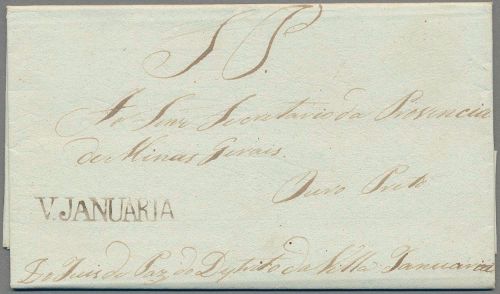 S P
Ao Senr Secretario da Provincia
de Minas Gerais.
Ouro Preto
V. JANUARIA
Do Juis de Paz do Destrito da Villa Januaria